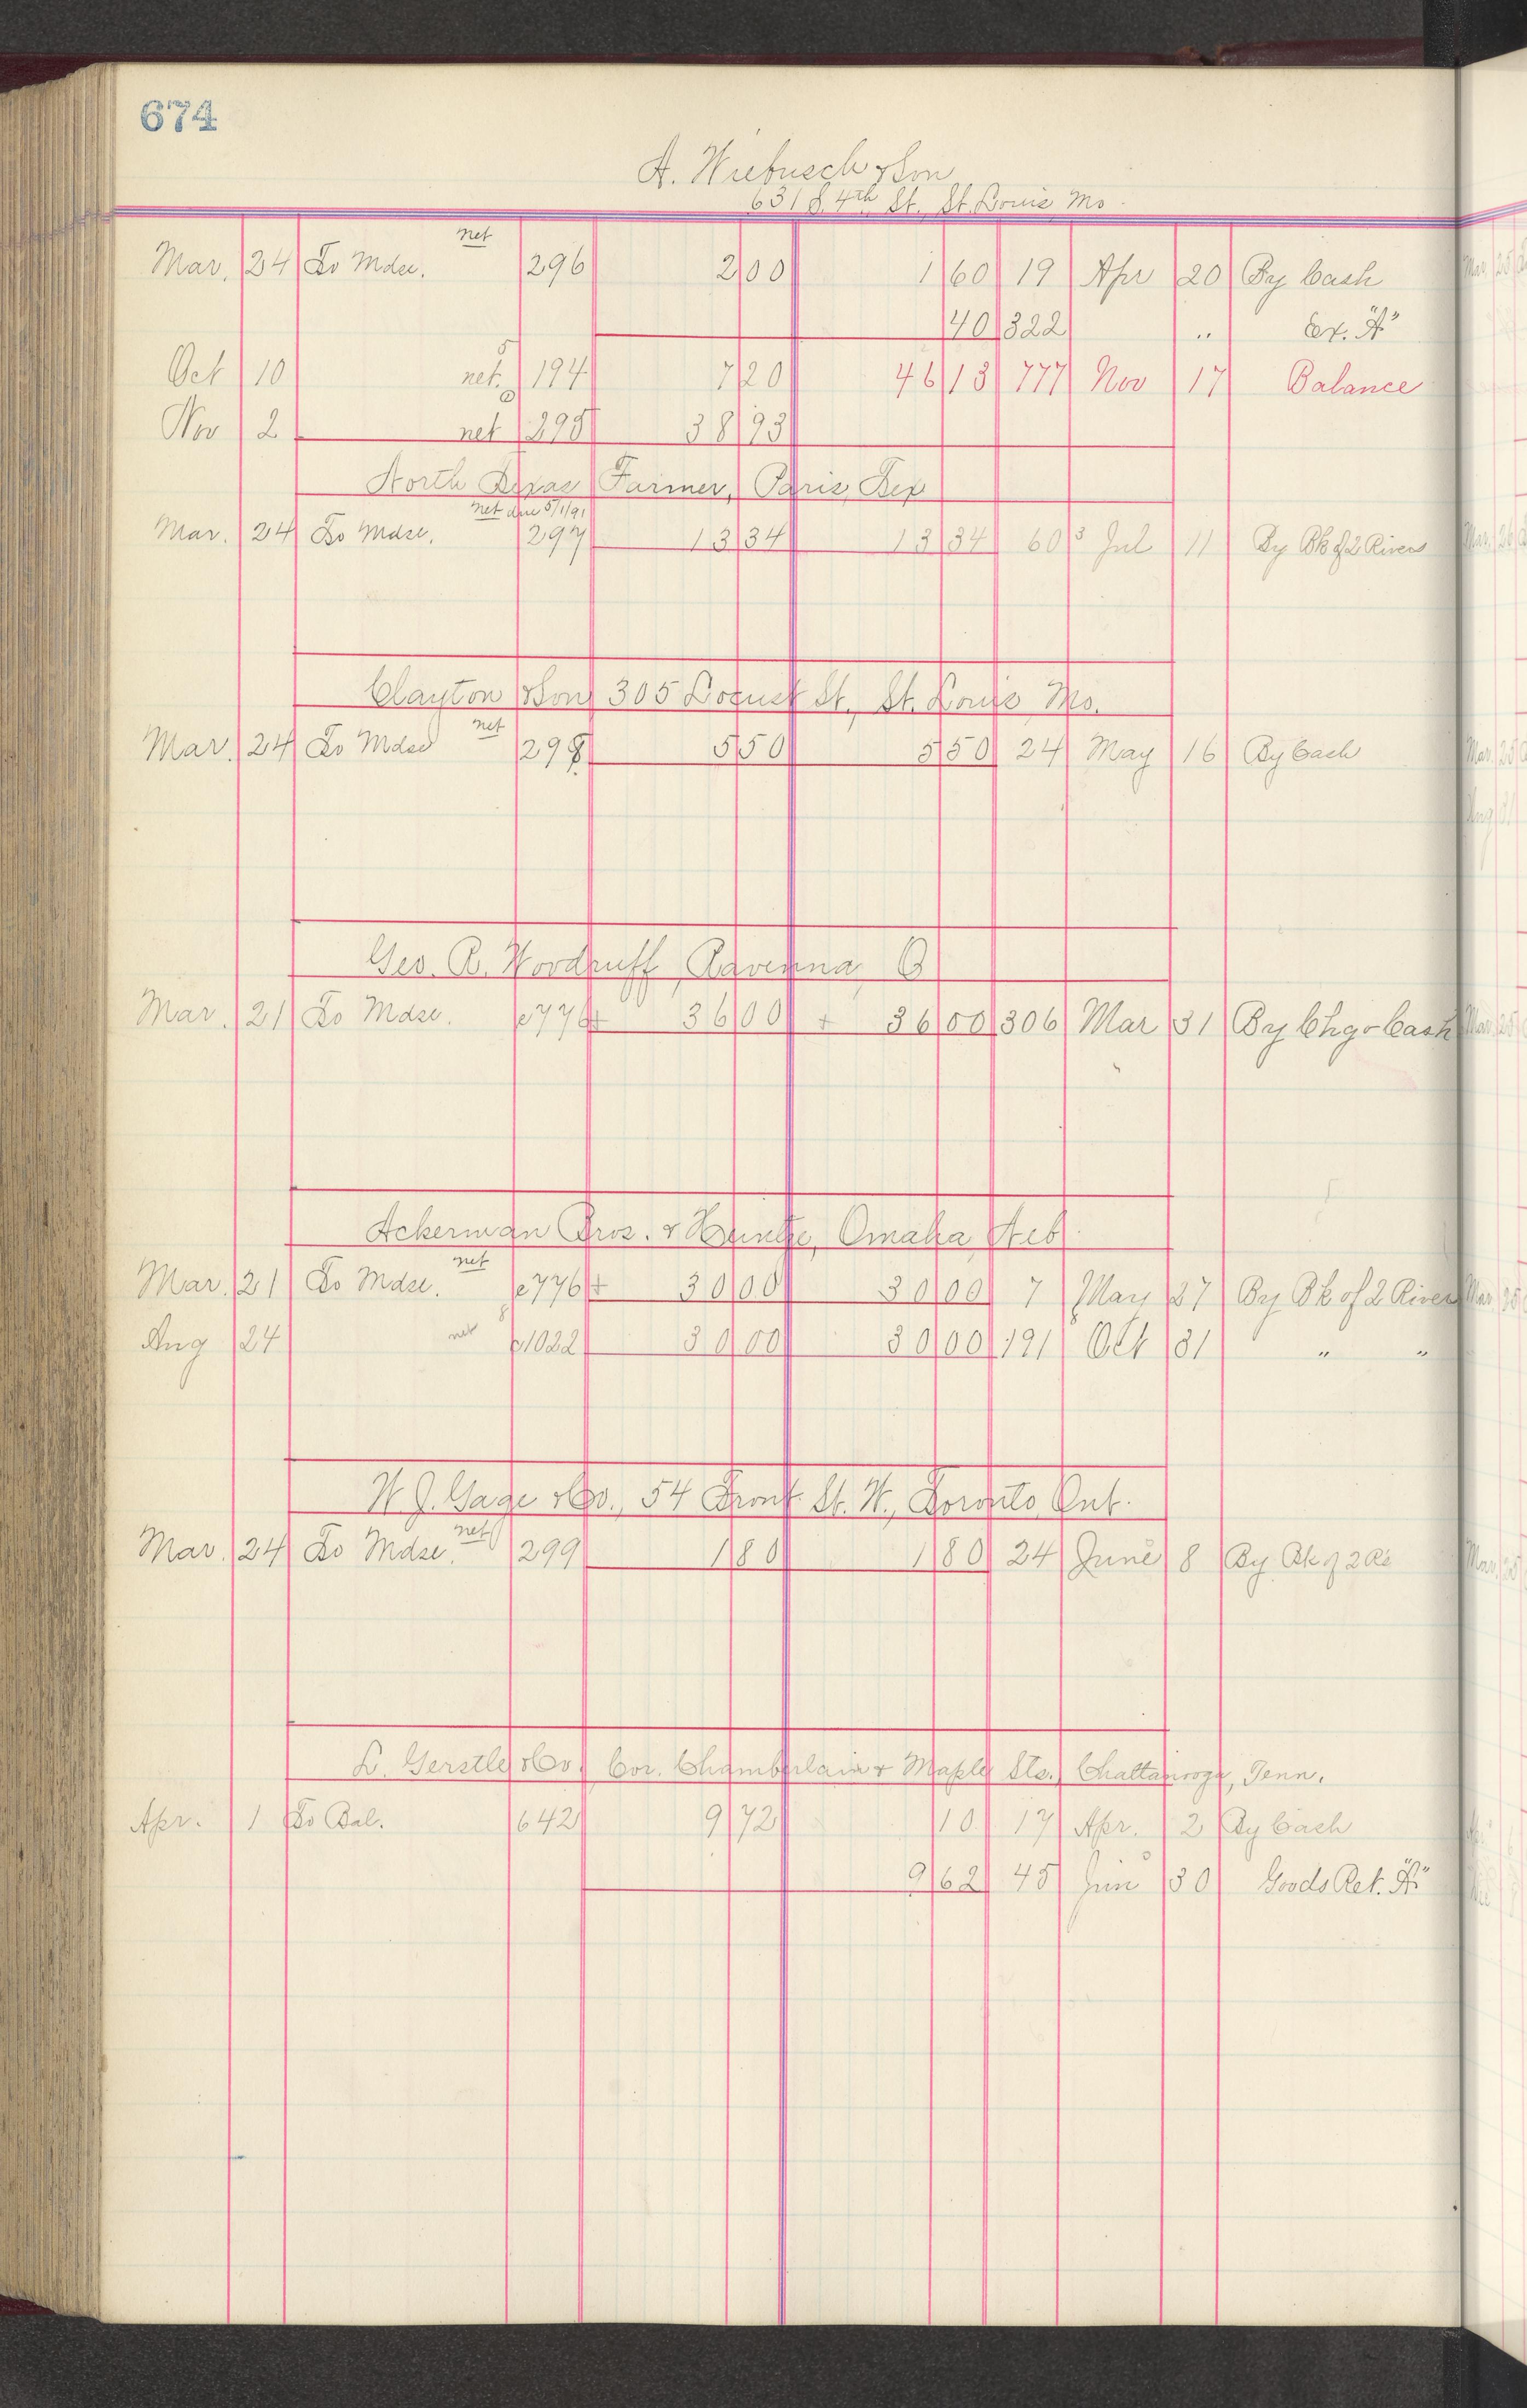 674
A. Wiebusch & Son
631 S. 4th St. St. Louis Mo.
Mar. 24 To Mdse. net 296 2 00 1 60 19 Apr 20 By Cash
40 322 .. Ex. "A"
Oct 10 net. 5 194 7 20 46 13 777 Nov 17 Balance
Nov 2 net 295 38 93
North Texas Farmer, Paris, Tex
Mar. 24 To Mdse. net due 5/1/91 297 13 34 13 34 60 3 Jul 11 By Bk of 2 Rivers
Clayton & Son 305 Locust St., St. Louis Mo.
Mar. 24 To Mdse net 298 5 50 5 50 24 May 16 By Cash
Geo. R. Woodruff Ravenna O
Mar. 21 To Mdse. e776 + 36 00 + 36 00 306 Mar 31 By Chgo Cash
Ackerman Bros. & Heintze, Omaha Neb
Mar. 21 To Mdse. net e776 + 30 00 30 00 7 May 27 By Bk of 2 River
Aug 24 net 8 e1022 30 00 30 00 191 Oct 31 " "
W. J. Gage & Co., 54 Front St. W., Toronto, Ont.
Mar. 24 To Mdse. net 299 1 80 1 80 24 June 8 By Bk of 2 Rs
L. Gerstle & Co. Cor. Chamberlain & Maple Sts. Chattanooga, Tenn.
Apr. 1 To Bal. 642 9 72 10 17 Apr. 2 By Cash
9 62 45 Jun 30 Goods Ret. "A"